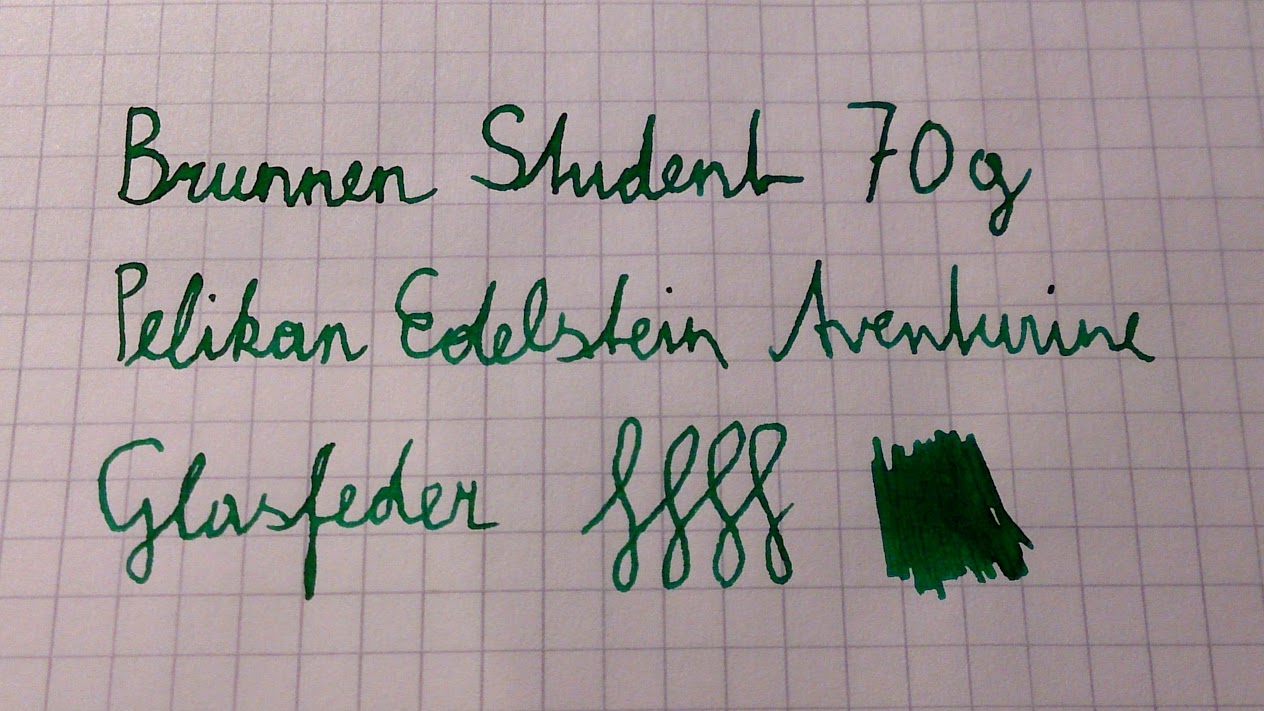 Brunnen Student 70g
Pelikan Edelstein Aventurine
Glasfeder